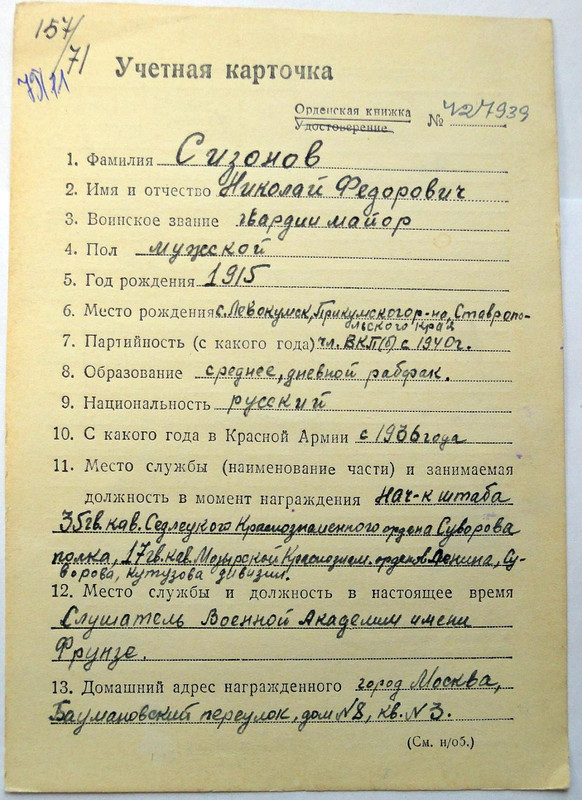 157/71
79/71
Учетная карточка
Орденская книжка
Удостоверение № 427939
1. Фамилия Сизонов
2. Имя и отчество Николай Федорович
3. Воинское звание гвардии майор
4. Пол мужской
5. Год рождения 1915
6. Место рождения с. Левокумск, Прикумского р-на, Ставропо-
льского края
7. Партийность (с какого года) чл. ВКП(б) с 1940 г.
8. Образование среднее, дневной рабфак.
9. Национальность русский
10. С какого года в Красной Армии с 1936 года
11. Место службы (наименование части) и занимаемая
должность в момент награждения Нач-к штаба
35 гв. кав. Седлецкого Краснознаменного ордена Суворова
полка, 17 гв. кав. Мозырской Краснознам. орденов Ленина, Су-
ворова, Кутузова дивизии.
12. Место службы и должность в настоящее время
Слушатель Военной Академии имени
Фрунзе.
13. Домашний адрес награжденного город Москва,
Баумановский переулок, дом №8, кв. №3.
(См. н/об.)